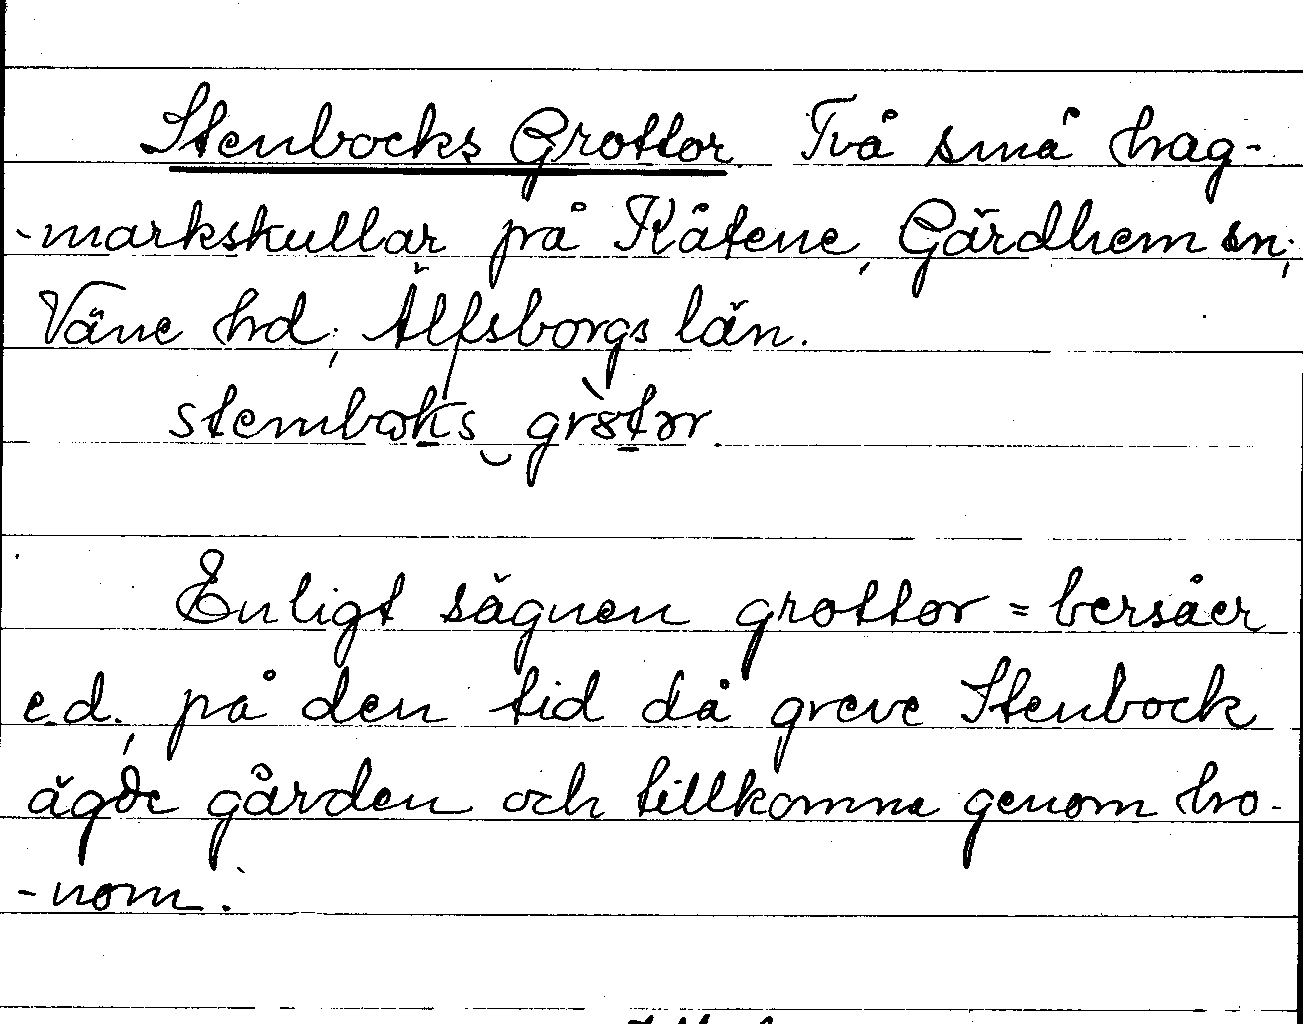 Stenbocks Grottor. Två små hag-
-markskullar på Kåtene, Gärdhem sn;
Väne hd; Älfsborgs län.
stemboks grøtər.
Enligt sägnen grottor = bersåer
e.d., på den tid då greve Stenbock
ägde gården och tillkomna genom ho-
-nom.